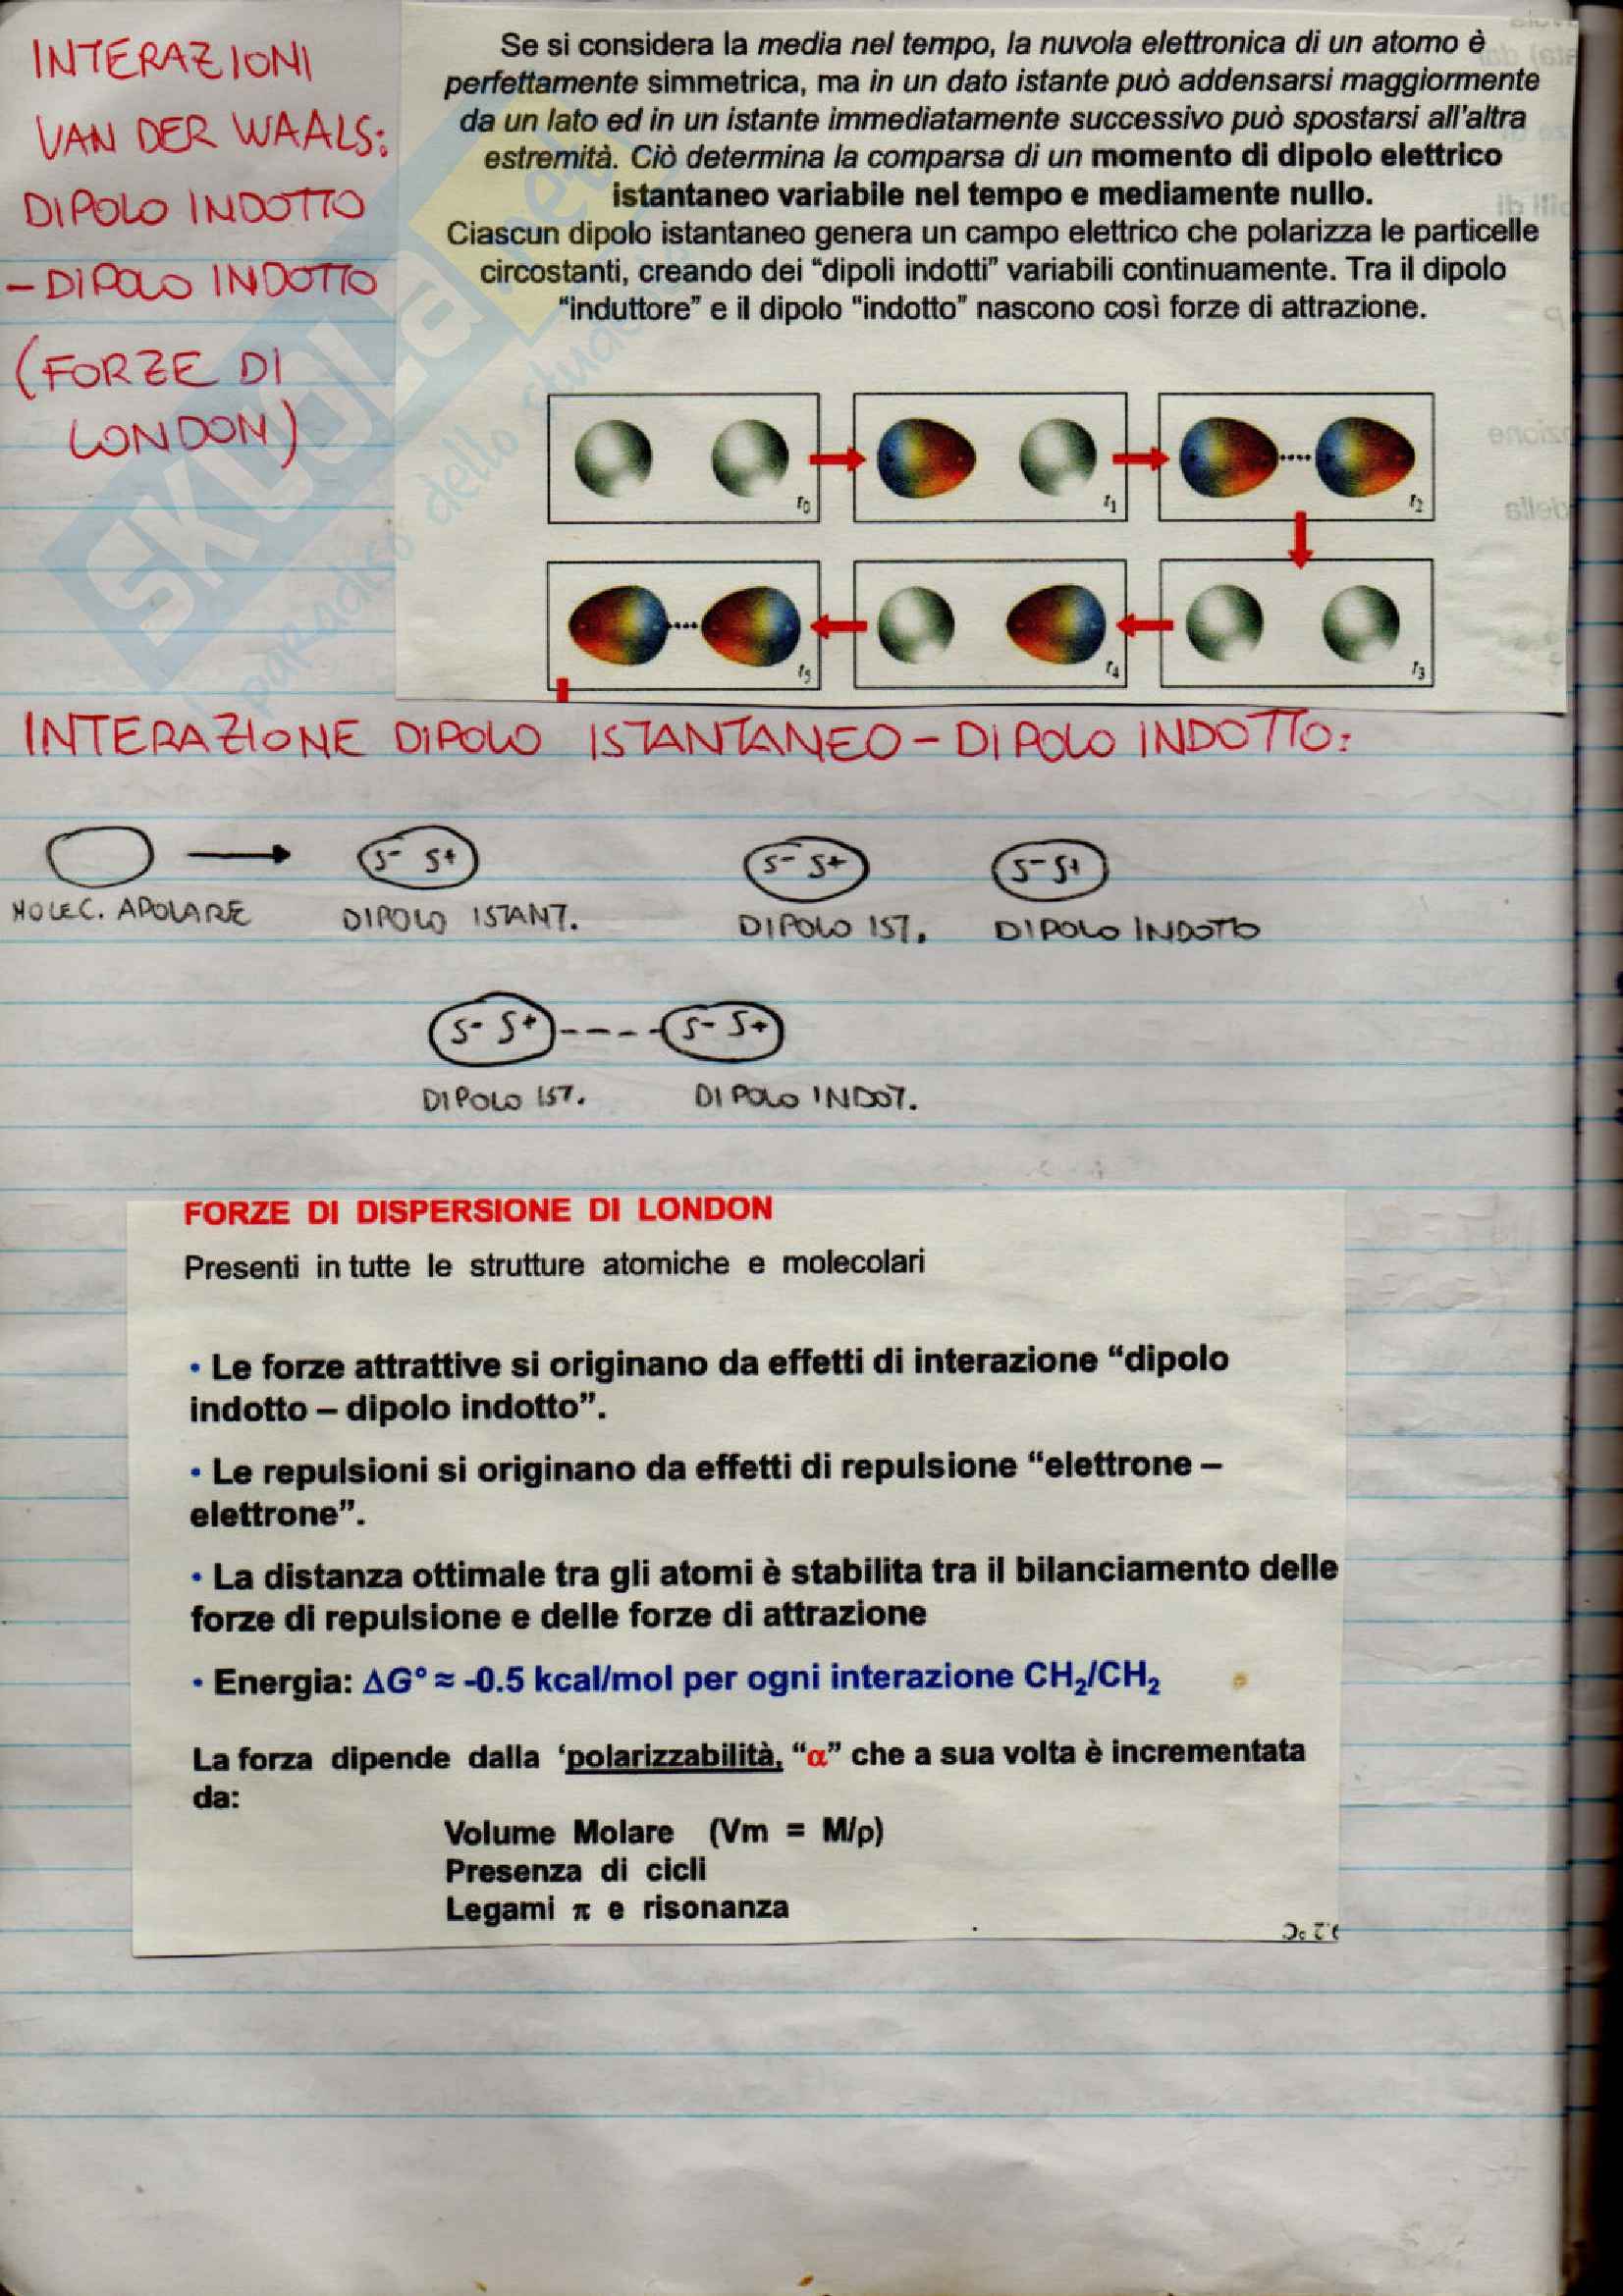 INTERAZIONI
VAN DER WAALS:
DIPOLO INDOTTO
-DIPOLO INDOTTO
(FORZE DI
LONDON)
Se si considera la media nel tempo, la nuvola elettronica di un atomo è
perfettamente simmetrica, ma in un dato istante può addensarsi maggiormente
da un lato ed in un istante immediatamente successivo può spostarsi all'altra
estremità. Ciò determina la comparsa di un momento di dipolo elettrico
istantaneo variabile nel tempo e mediamente nullo.
Ciascun dipolo istantaneo genera un campo elettrico che polarizza le particelle
circostanti, creando dei “dipoli indotti” variabili continuamente. Tra il dipolo
“induttore” e il dipolo “indotto” nascono così forze di attrazione.
SKUOLA.net
il paradiso dello
t0 t1 t2
t5 t4 t3
INTERAZIONE DIPOLO ISTANTANEO-DIPOLO INDOTTO:
δ- δ+ δ- δ+ δ- δ+
MOLEC. APOLARE DIPOLO ISTANT. DIPOLO IST. DIPOLO INDOTTO
δ- δ+ ---- δ- δ+
DIPOLO IST. DIPOLO INDOT.
FORZE DI DISPERSIONE DI LONDON
Presenti in tutte le strutture atomiche e molecolari
• Le forze attrattive si originano da effetti di interazione “dipolo
indotto – dipolo indotto”.
• Le repulsioni si originano da effetti di repulsione “elettrone –
elettrone”.
• La distanza ottimale tra gli atomi è stabilita tra il bilanciamento delle
forze di repulsione e delle forze di attrazione
• Energia: ΔG° ≈ -0.5 kcal/mol per ogni interazione CH₂/CH₂
La forza dipende dalla ‘polarizzabilità, “α” che a sua volta è incrementata
da:
Volume Molare (Vm = M/ρ)
Presenza di cicli
Legami π e risonanza